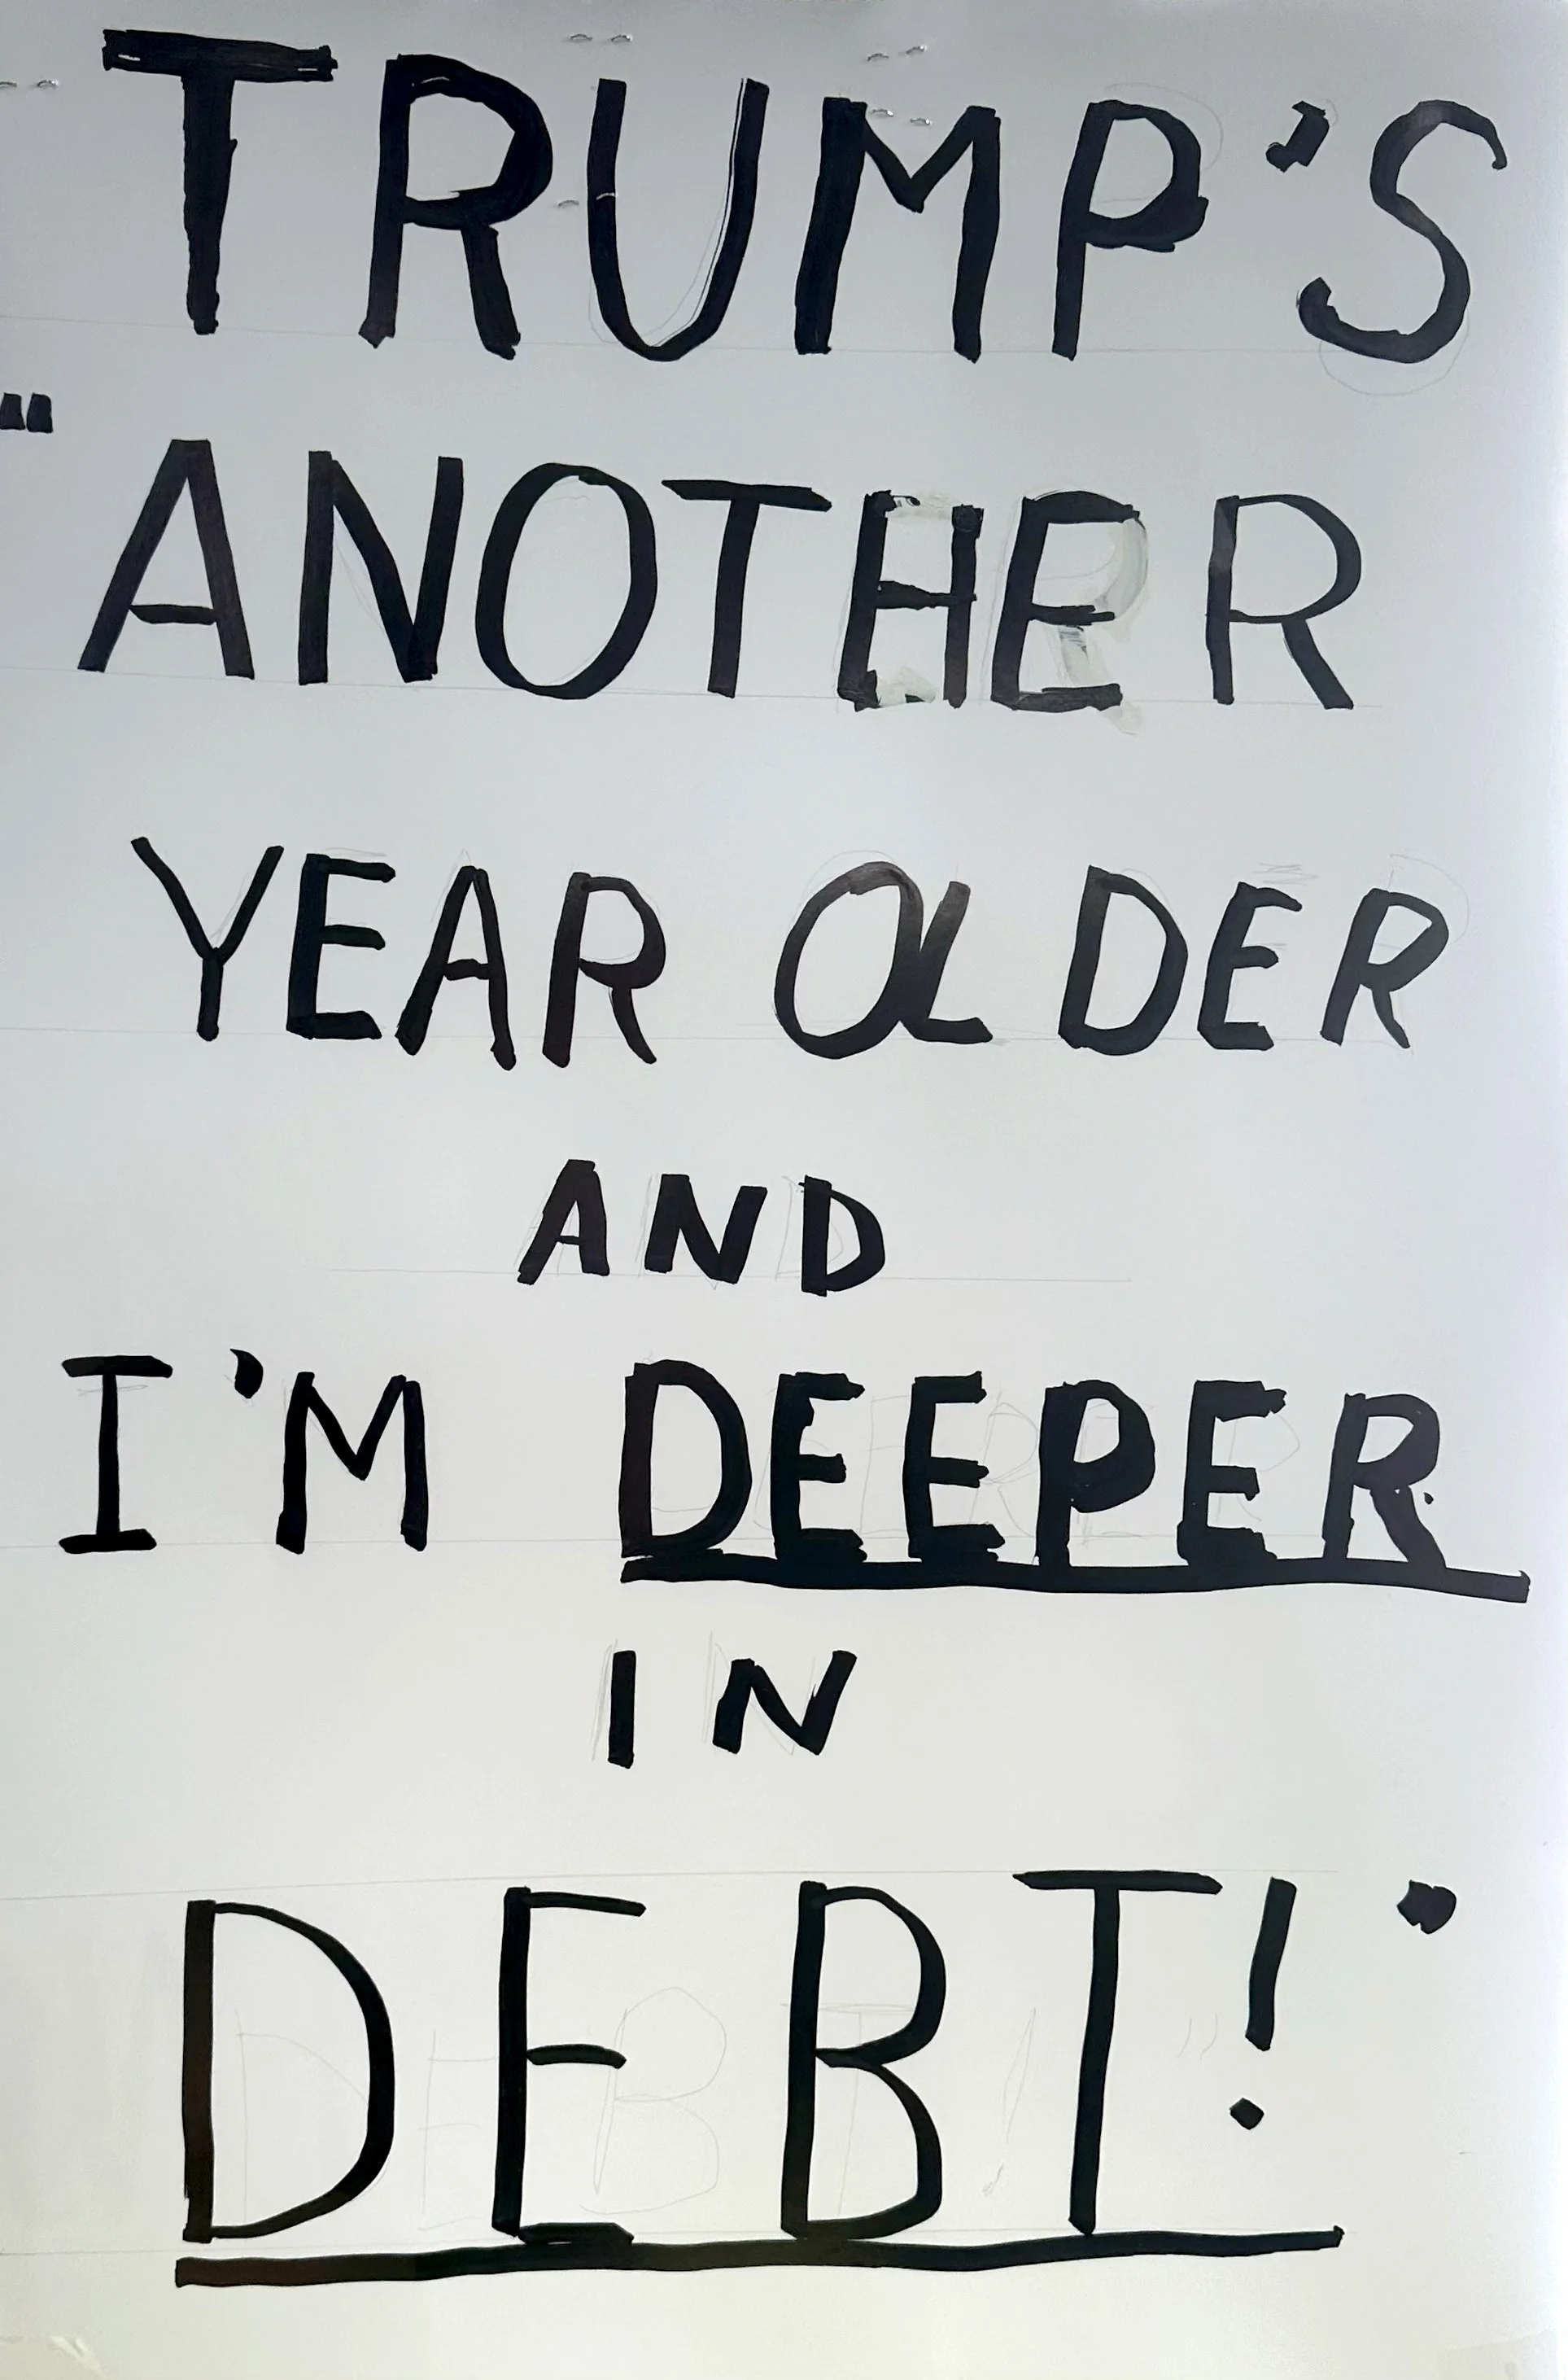 TRUMP'S
"ANOTHER
YEAR OLDER
AND
I'M DEEPER
IN
DEBT!"